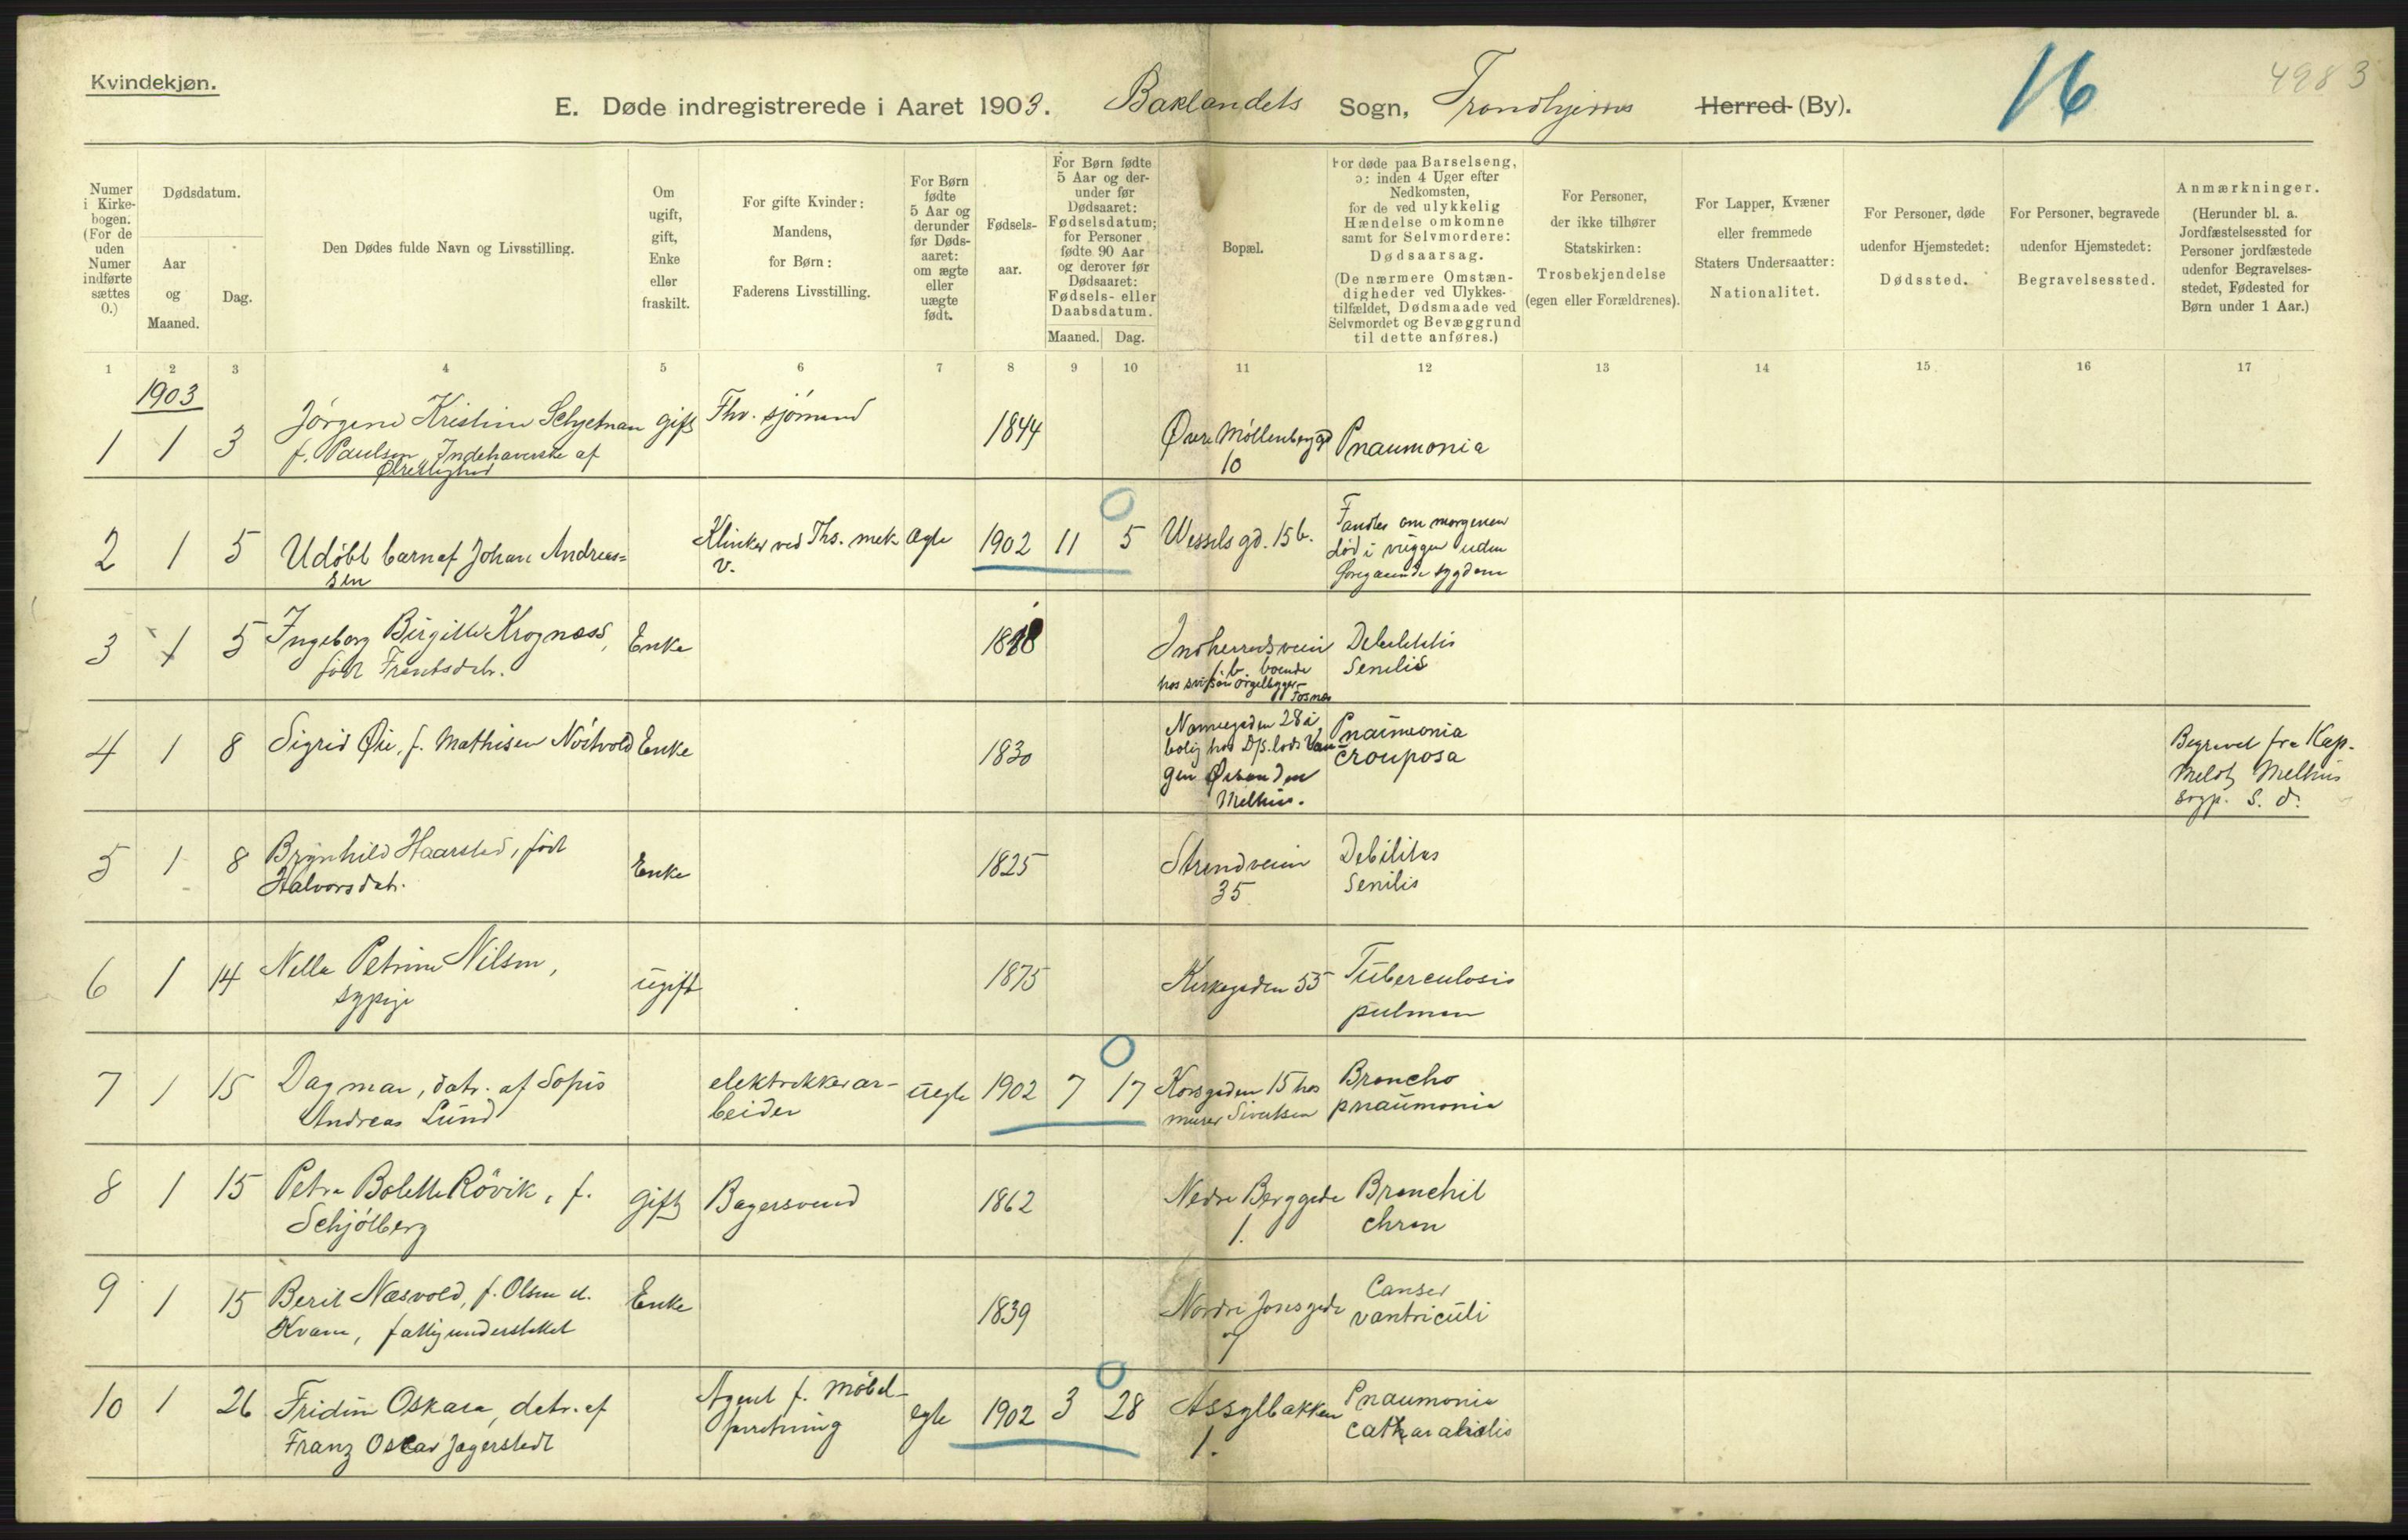 Kvindekjøn.
E. Døde indregistrerede i Aaret 1903. Baklandets Sogn, Trondhjems Herred (By).
16
4983
Numer
i Kirke-
bogen.
(For de
uden
Numer
indførte
sættes
0.)
Dødsdatum.
Aar
og
Maaned.
Dag.
Den Dødes fulde Navn og Livsstilling.
Om
ugift,
gift,
Enke
eller
fraskilt.
For gifte Kvinder:
Mandens,
for Børn:
Faderens Livsstilling.
For Børn
fødte
5 Aar og
derunder
før Døds-
aaret:
om ægte
eller
uægte
født.
Fødsels-
aar.
For Børn fødte
5 Aar og der-
under før
Dødsaaret:
Fødselsdatum;
for Personer
fødte 90 Aar
og derover før
Dødsaaret:
Fødsels- eller
Daabsdatum.
Maaned. Dag.
Bopæl.
For døde paa Barselseng,
ɔ: inden 4 Uger efter
Nedkomsten,
for de ved ulykkelig
Hændelse omkomne
samt for Selvmordere:
Dødsaarsag.
(De nærmere Omstæn-
digheder ved Ulykkes-
tilfældet, Dødsmaade ved
Selvmordet og Bevæggrund
til dette anføres.)
For Personer,
der ikke tilhører
Statskirken:
Trosbekjendelse
(egen eller Forældrenes).
For Lapper, Kvæner
eller fremmede
Staters Undersaatter:
Nationalitet.
For Personer, døde
udenfor Hjemstedet:
Dødssted.
For Personer, begravede
udenfor Hjemstedet:
Begravelsessted.
Anmærkninger.
(Herunder bl. a.
Jordfæstelsessted for
Personer jordfæstede
udenfor Begravelses-
stedet, Fødested for
Børn under 1 Aar.)
1 2 3 4 5 6 7 8 9 10 11 12 13 14 15 16 17
1903
1 1 3 Jörgine Kristine Schjetnan gift Thv. sjömand 1844 Øvre Möllenberggd Pnaumonia
f. Paulsen Indehaverske af 10
2 1 5 Udöbt barn af Johan Andreas= Klinker ved Ths. mek ægte 1902 11 5 Wesselsgd. 15 b. Fandtes om morgenen
sen v. död i vuggen uden
foregaaende sygdom
3 1 5 Ingeborg Birgitte Krognæss, Enke 1818 Indherredsveien Debilitatis
født Frentsdatr. 1 b. boende Senilis
hos svigsön orgelbygger
Tosnæs
4 1 8 Sigrid Øie, f. Mathisen Nöstvold Enke 1830 28 i Pnaumonia
bolig hos crouposa
Melhus.
Begravet fra Kap.
Melhus
5 1 8 Brynhild Haarstad, født Enke 1825 Strandveien Debilitas
Halvorsdatr. 35 Senilis
6 1 14 Nella Petrine Nilsen, ugift 1875 Kirkegaden 55 Tuberculosis
sypige pulmon
7 1 15 Dagmar, datr. af Sofus elektrikkerar- uegte 1902 7 17 Korsgaden 15 hos Broncho
Andreas Lund beider murer Sivertsen pnaumonia
8 1 15 Petra Bolette Rövik, f. gift Bagersvend 1862 Nedre Berggade Bronchit
Schjölberg 1. chron
9 1 15 Berit Næsvold, f. Olsen d. Enke 1839 Nordre Jonsgade Canser
Kvam, fattigunderstøttet 7 vantriculi
10 1 26 Fridun Oskara, datr. af Agent f. Möbel- egte 1902 3 28 Assylbakken Pnaumonia
Franz Oscar Jagerstedt forretning 1. catharalis